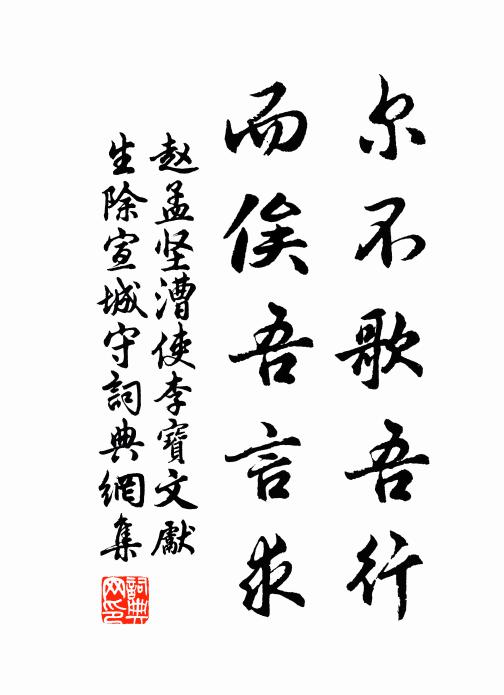 尔不歌吾行
而俟吾言求
赵孟坚漕使李寶文獻
生除宣城守詞典網集
詞典网印